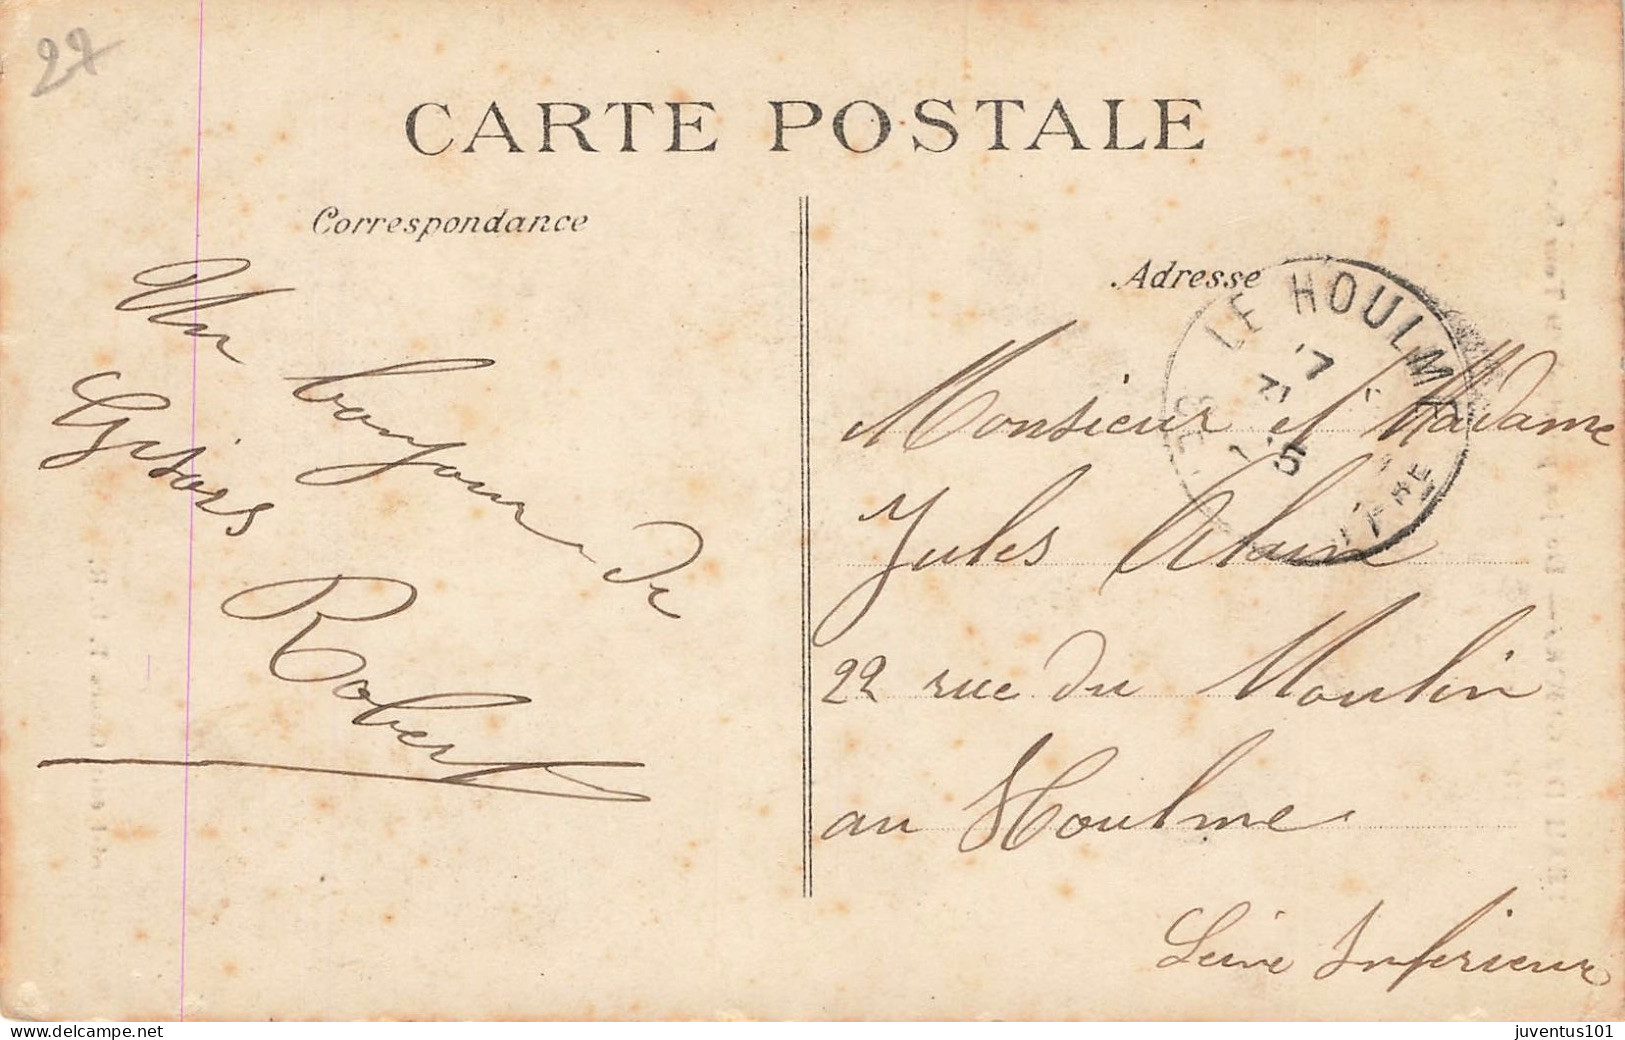 27
CARTE POSTALE
Correspondance
Un bonjour de
Gisors
Robert
Adresse
LE HOULME
Monsieur et Madame
Jules Alain
22 rue du Moulin
au Houlme
Seine Inférieure
www.delcampe.net
juventus101